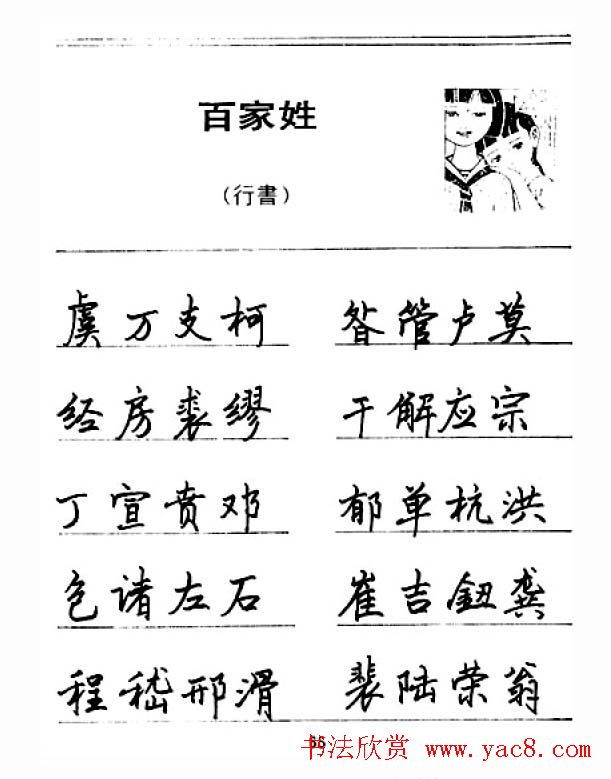 百家姓
(行書)
虞万支柯 昝管卢莫
经房裘缪 干解应宗
丁宣贲邓 郁单杭洪
包诸左石 崔吉鈕龚
程嵇邢滑 裴陆荣翁
书法欣赏 www.yac8.com